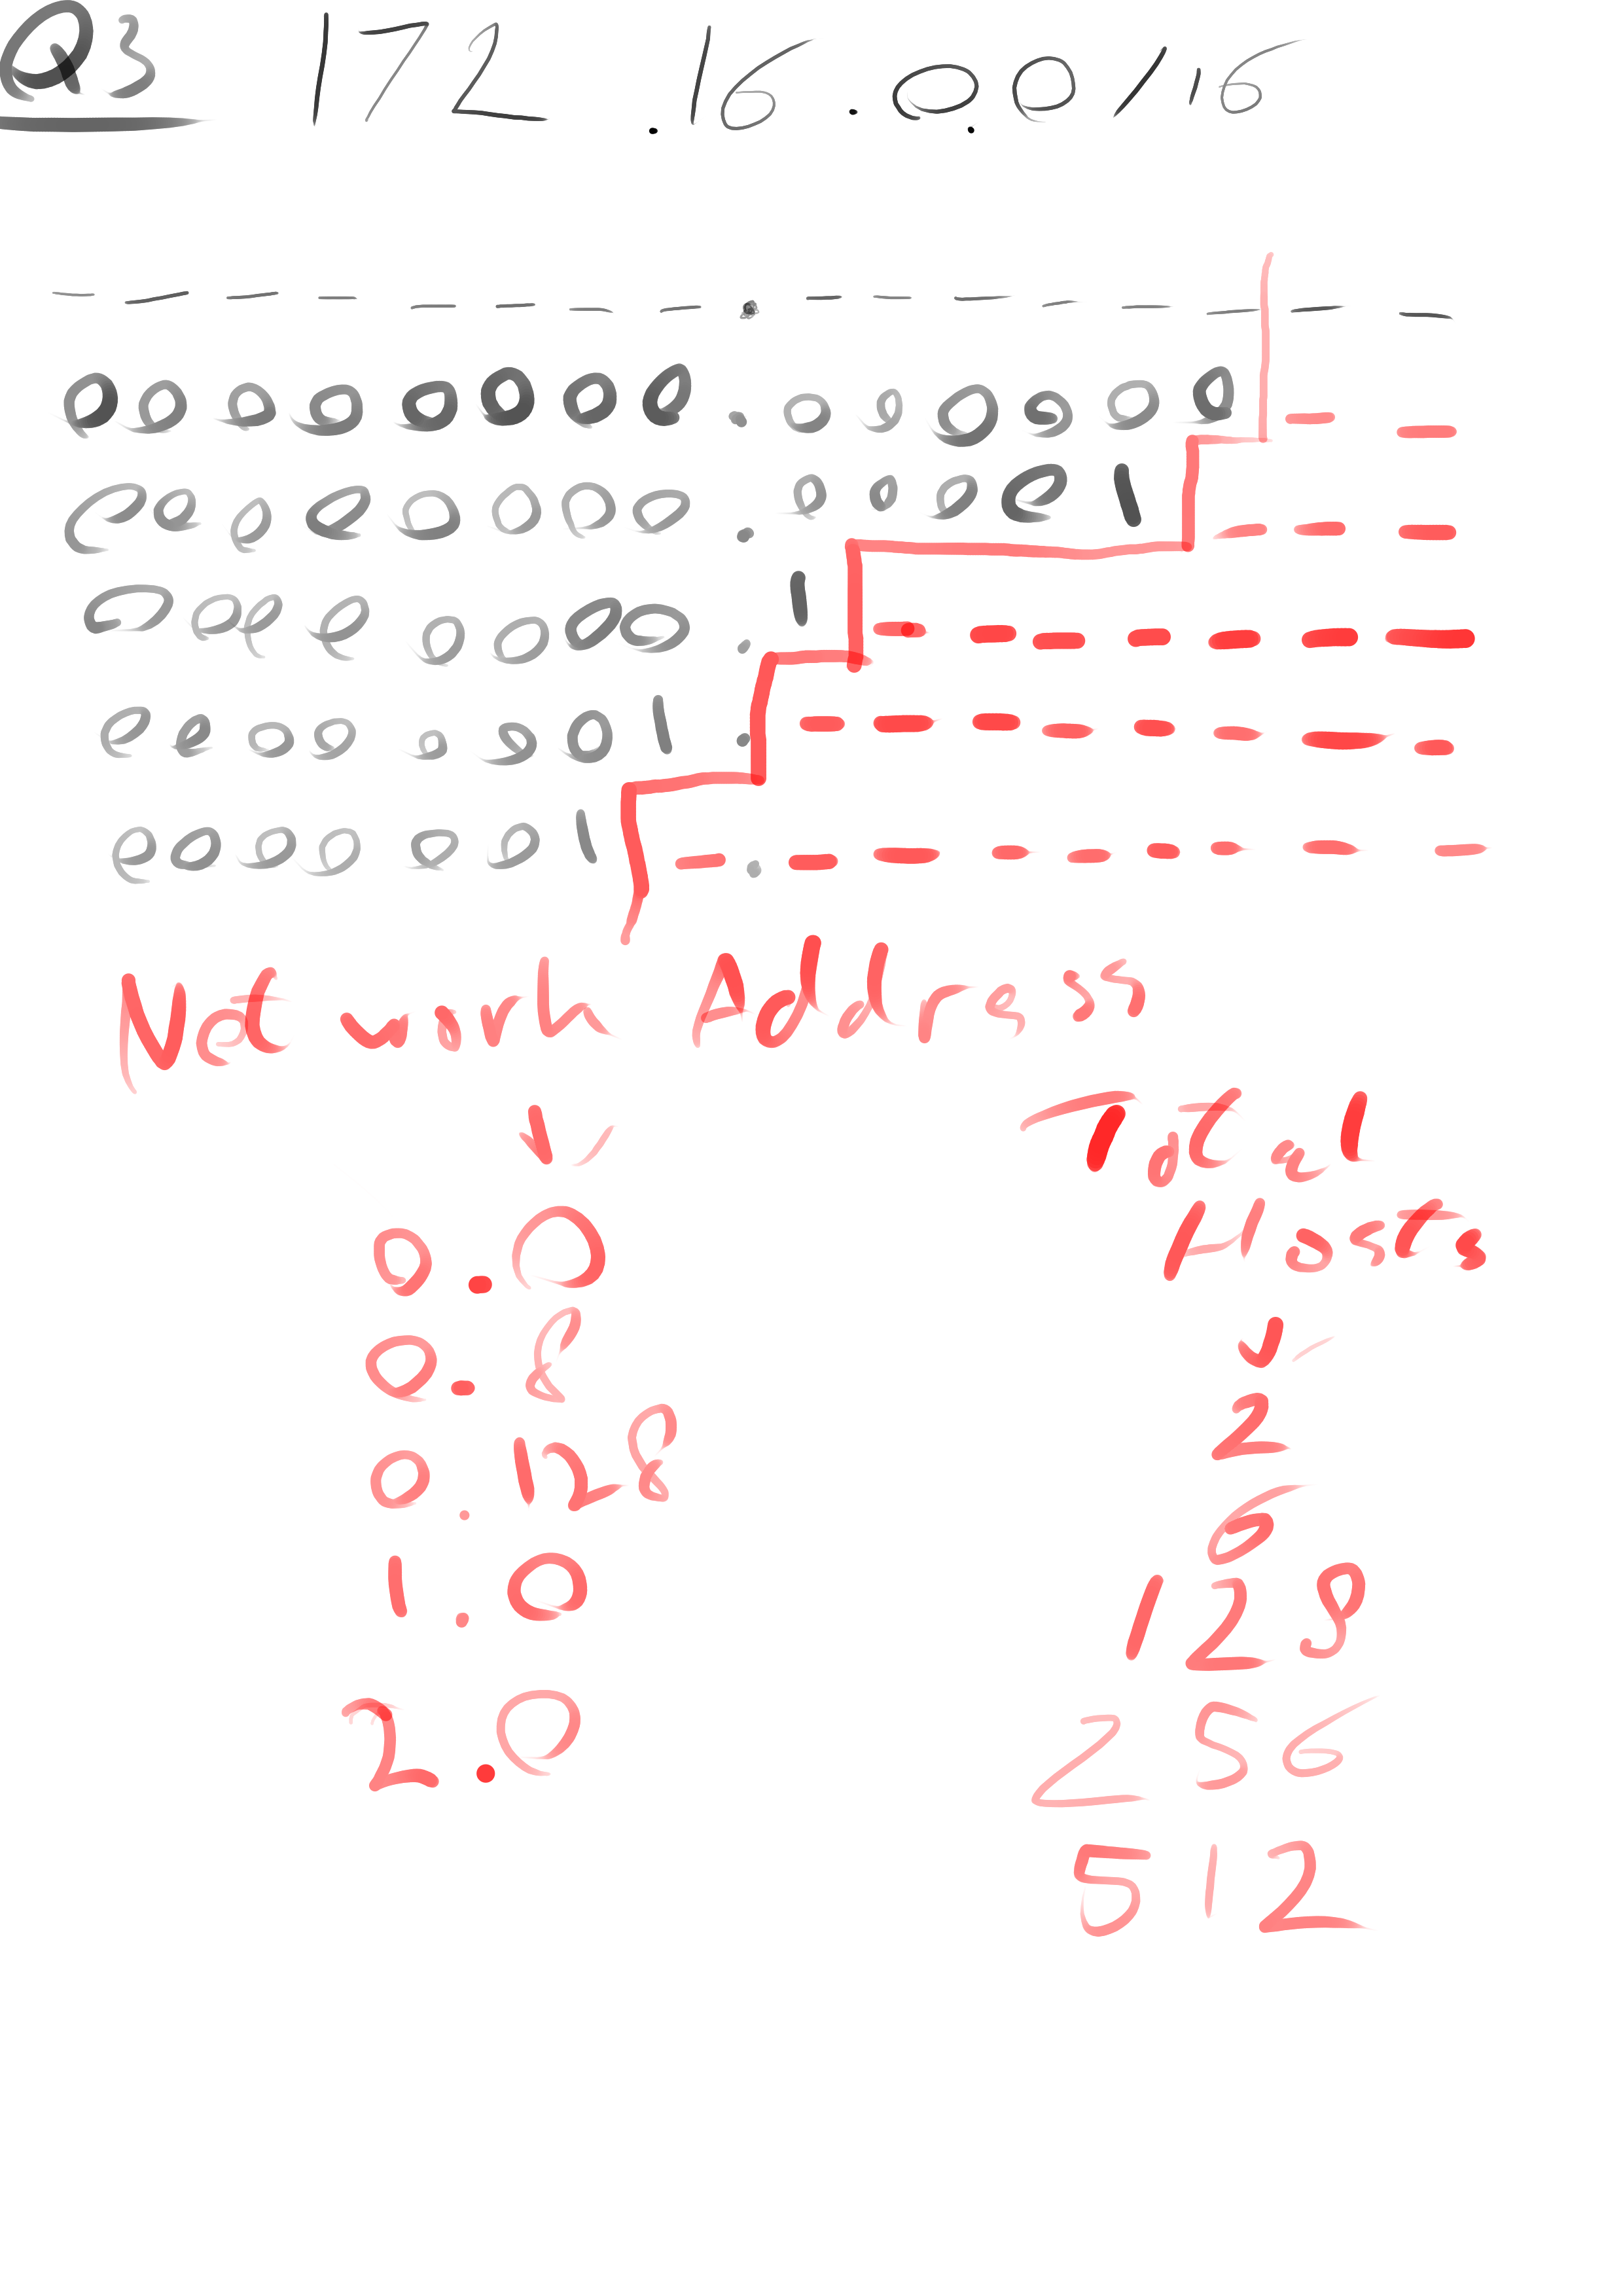 Q3 172.16.0.0/16
_ _ _ _ _ _ _ _ . _ _ _ _ _ _ _ _
0 0 0 0 0 0 0 0 . 0 0 0 0 0 0 _ _
0 0 0 0 0 0 0 0 . 0 0 0 0 1 _ _ _
0 0 0 0 0 0 0 0 . 1 _ _ _ _ _ _ _
0 0 0 0 0 0 0 1 . _ _ _ _ _ _ _ _
0 0 0 0 0 0 1 _ . _ _ _ _ _ _ _ _
Network Address
0.0
0.8
0.128
1.0
2.0
Total
Hosts
2
6
128
256
512